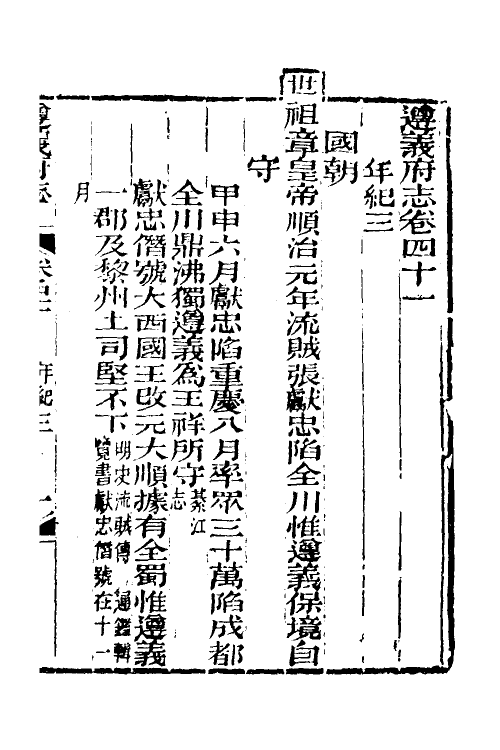 遵義府志卷四十一
年紀三
國朝
世祖章皇帝順治元年流賊張獻忠陷全川惟遵義保境自
守
甲申六月獻忠陷重慶八月率眾三十萬陷成都
全川鼎沸獨遵義為王祥所守綦江志
獻忠僭號大西國王改元大順據有全蜀惟遵義
一郡及黎州土司堅不下明史流賊傳 通鑑輯覽書獻忠僭號在十一
月
遵義府志 卷四十一 年紀三 一